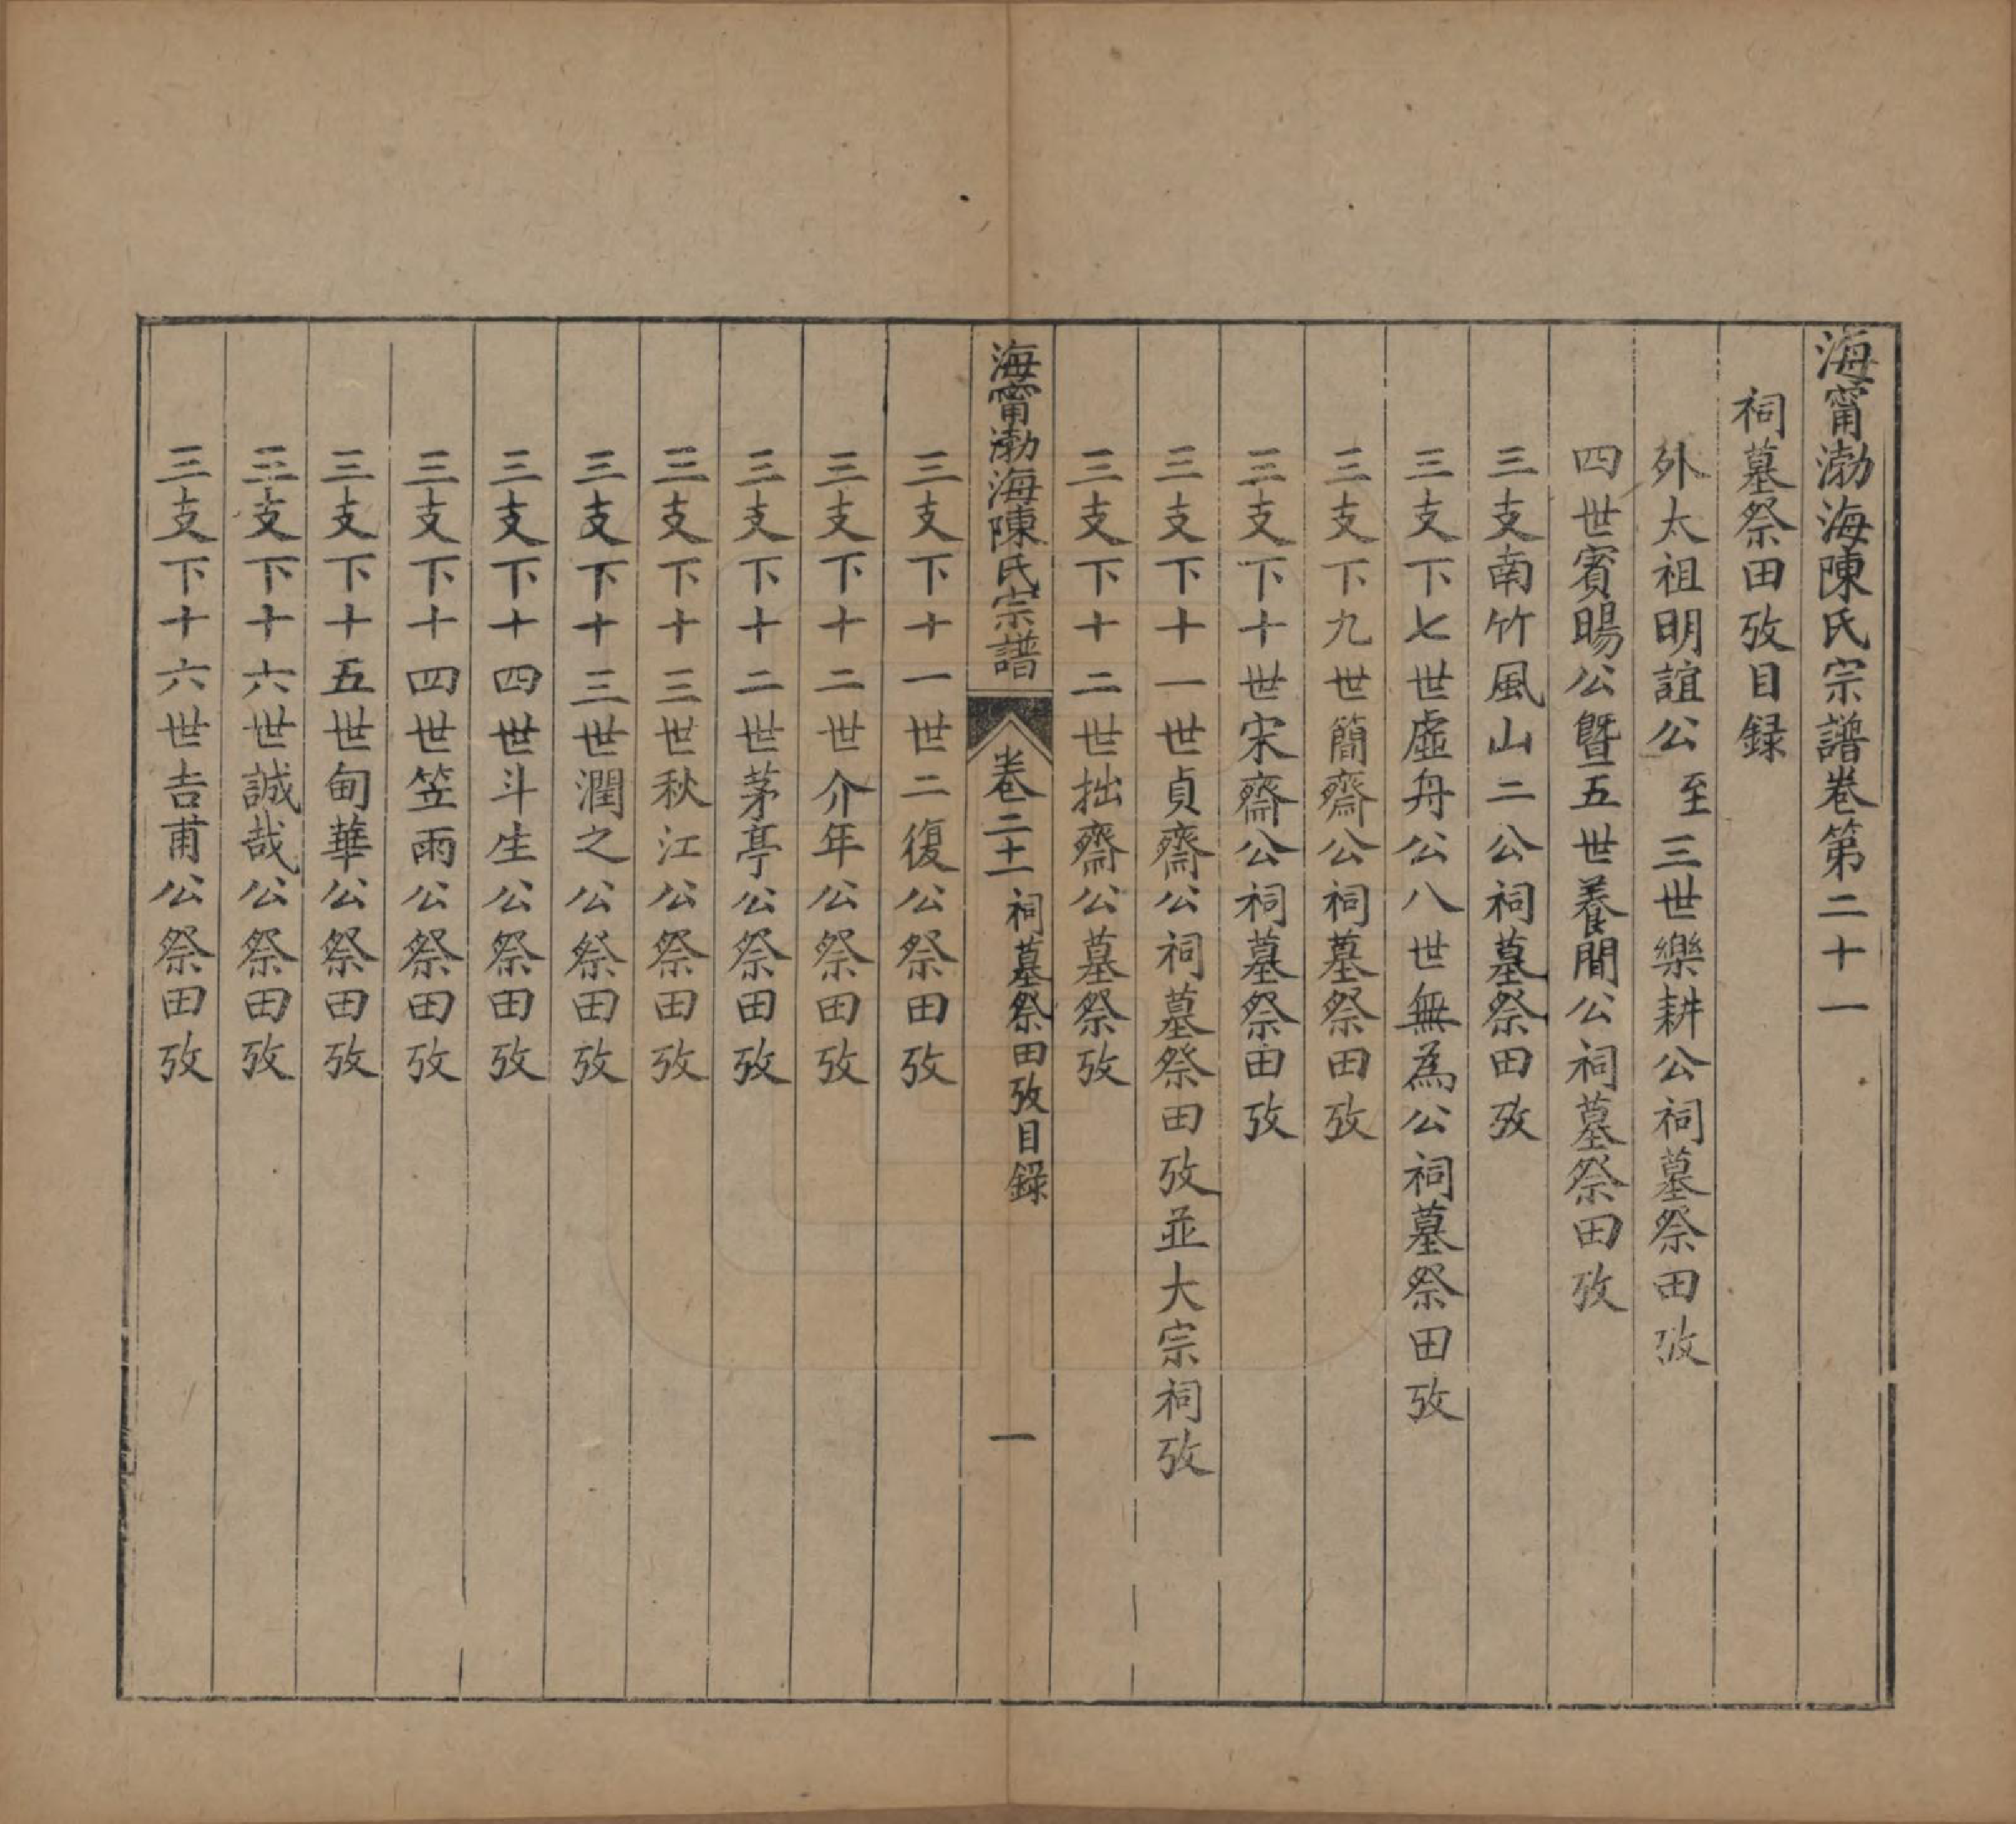 海甯渤海陳氏宗譜卷第二十一
祠墓祭田攷目録
外太祖明誼公至三世樂耕公祠墓祭田攷
四世賓暘公暨五世養閒公祠墓祭田攷
三支南竹風山二公祠墓祭田攷
三支下七世虛舟公八世無為公祠墓祭田攷
三支下九世簡齋公祠墓祭田攷
三支下十世宋齋公祠墓祭田攷
三支下十一世貞齋公祠墓祭田攷並大宗祠攷
三支下十二世拙齋公墓祭攷
海甯渤海陳氏宗譜 卷二十一 祠墓祭田攷目録 一
三支下十一世二復公祭田攷
三支下十二世介年公祭田攷
三支下十二世茅亭公祭田攷
三支下十三世秋江公祭田攷
三支下十三世潤之公祭田攷
三支下十四世斗生公祭田攷
三支下十四世笠雨公祭田攷
三支下十五世甸華公祭田攷
三支下十六世誠哉公祭田攷
三支下十六世吉甫公祭田攷